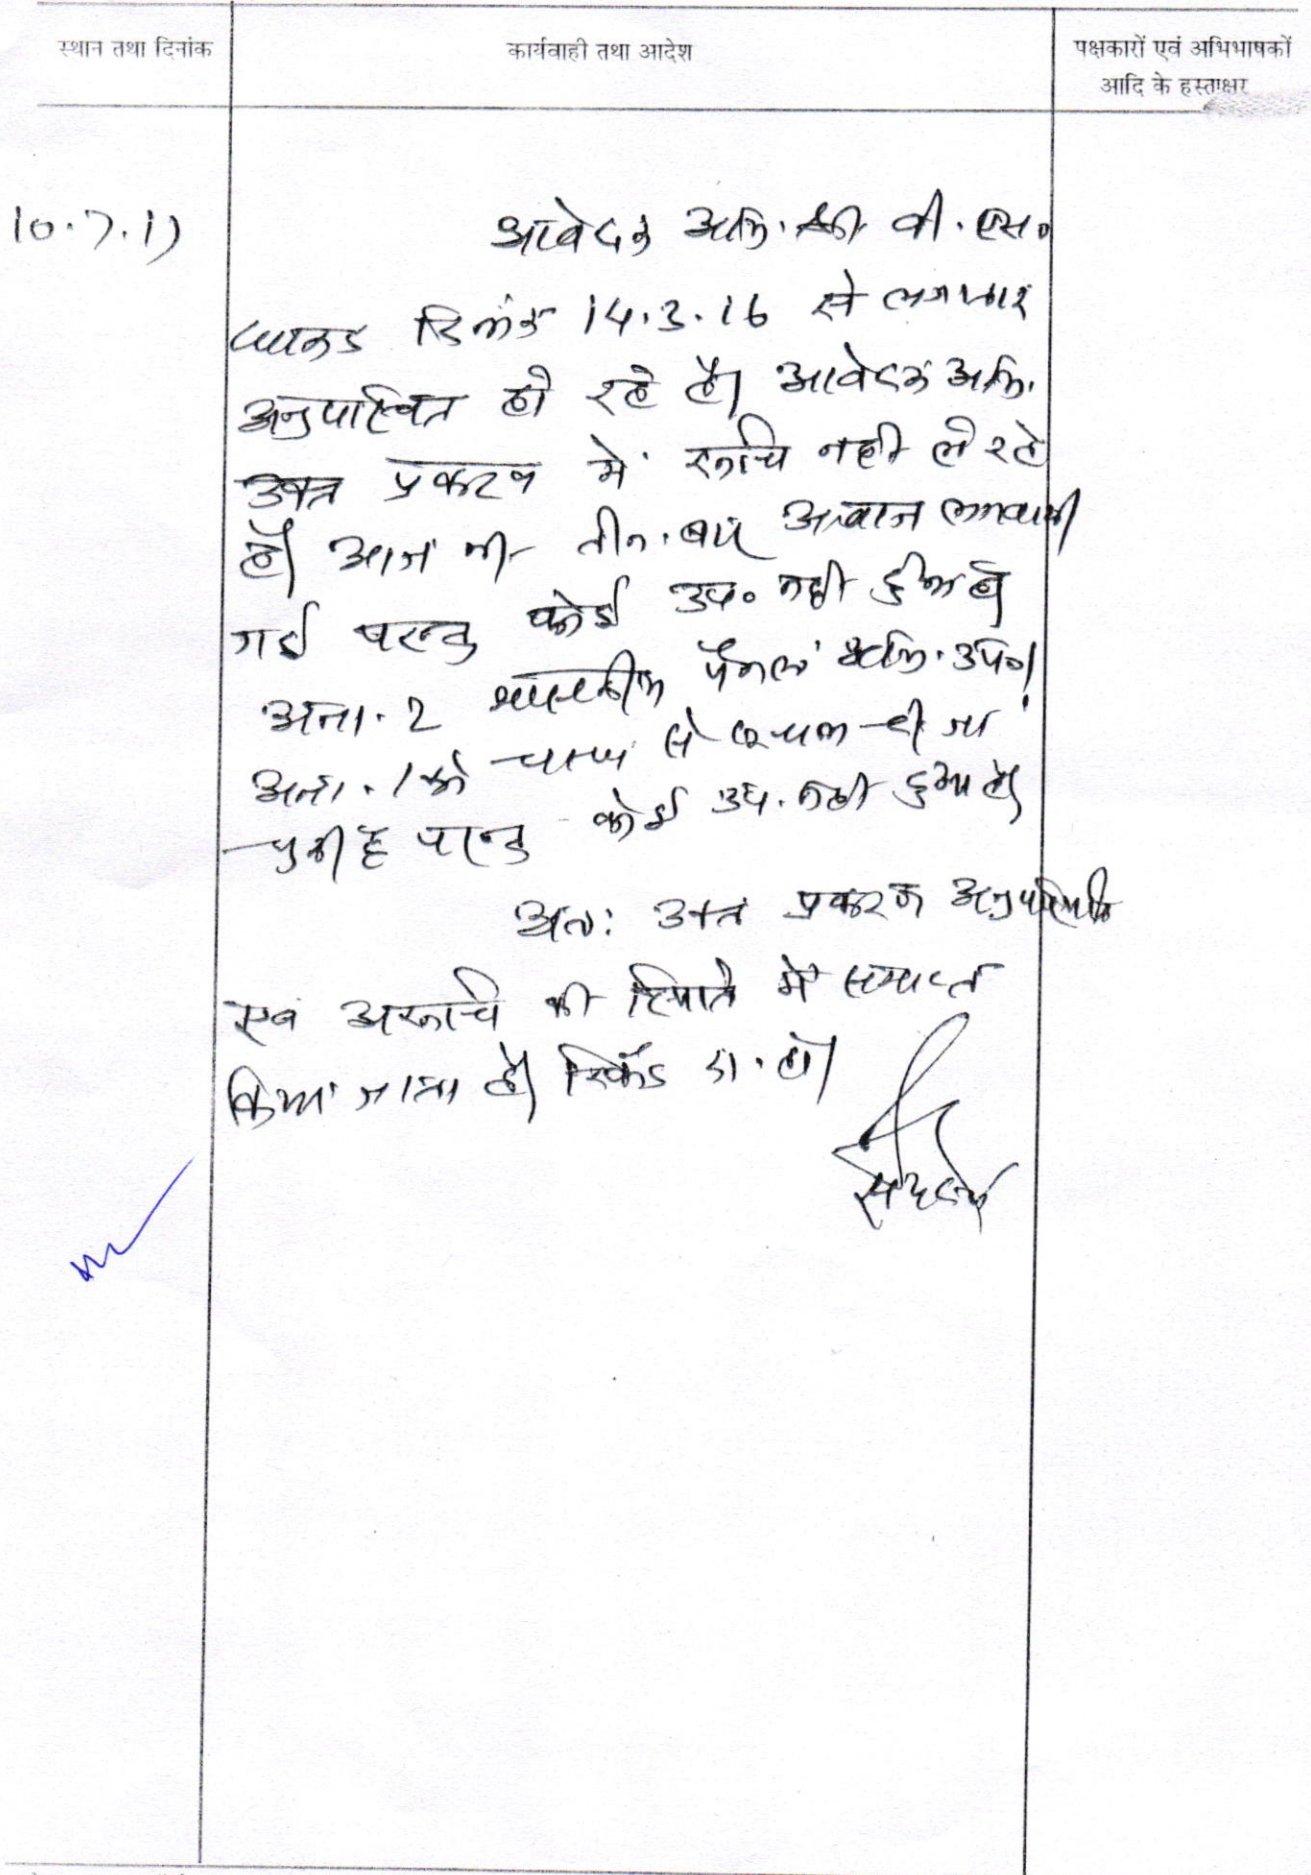 स्थान तथा दिनांक
कार्यवाही तथा आदेश
पक्षकारों एवं अभिभाषकों
आदि के हस्ताक्षर
10.7.17
आवेदक अभि. श्री वी. एस.
धाकड दिनांक 14.3.16 से लगातार
अनुपस्थित हो रहे है। आवेदक अभि.
उक्त प्रकरण में रूचि नही ले रहे
है। आज भी तीन बार आवाज लगवायी
गई परन्तु कोई उप० नही हुआ है
अना. 2 शासकीय पैनल अभि. उप०।
अना. 1 को चस्पा से सूचना दी जा
चुकी है परन्तु कोई उप. नही हुआ है।
अतः उक्त प्रकरण अनुपस्थिति
एवं अरूचि की स्थिति में समाप्त
किया जाता है। रिकॉर्ड दा. हो।
सदस्य